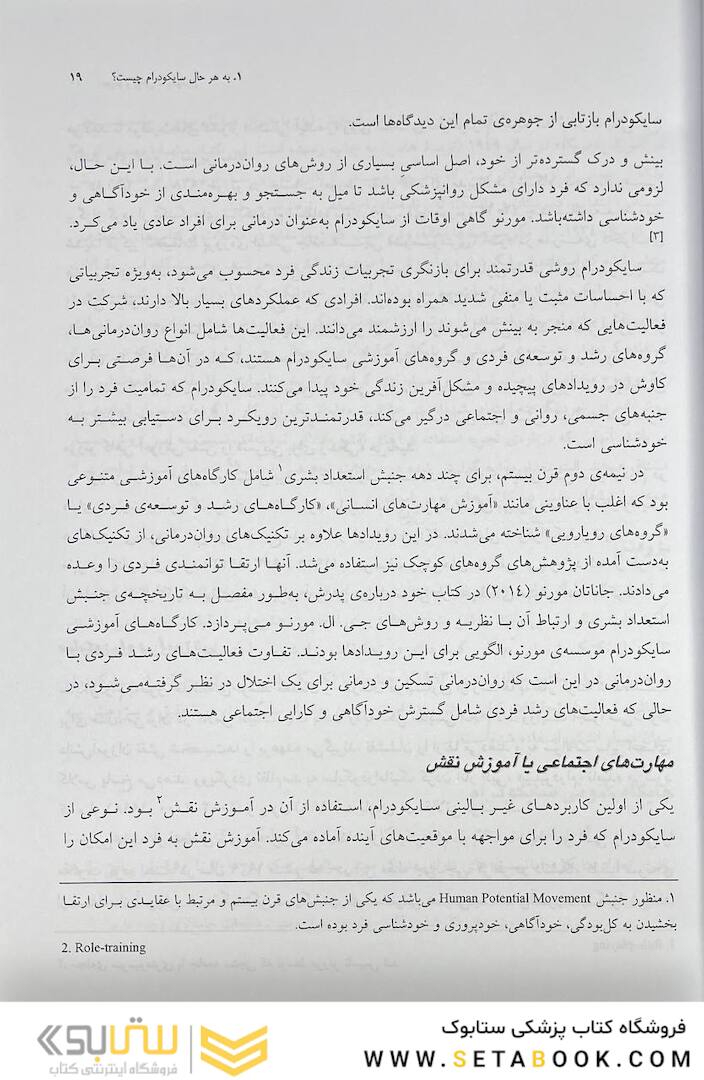 ۱. به هر حال سایکودرام چیست؟ ۱۹
سایکودرام بازتابی از جوهره‌ی تمام این دیدگاه‌ها است.
بینش و درک گسترده‌تر از خود، اصل اساسیِ بسیاری از روش‌های روان‌درمانی است. با این حال،
لزومی ندارد که فرد دارای مشکل روانپزشکی باشد تا میل به جستجو و بهره‌مندی از خودآگاهی و
خودشناسی داشته‌باشد. مورنو گاهی اوقات از سایکودرام به‌عنوان درمانی برای افراد عادی یاد می‌کرد.
[۳]
سایکودرام روشی قدرتمند برای بازنگری تجربیات زندگی فرد محسوب می‌شود، به‌ویژه تجربیاتی
که با احساسات مثبت یا منفی شدید همراه بوده‌اند. افرادی که عملکردهای بسیار بالا دارند، شرکت در
فعالیت‌هایی که منجر به بینش می‌شوند را ارزشمند می‌دانند. این فعالیت‌ها شامل انواع روان‌درمانی‌ها،
گروه‌های رشد و توسعه‌ی فردی و گروه‌های آموزشی سایکودرام هستند، که در آن‌ها فرصتی برای
کاوش در رویدادهای پیچیده و مشکل‌آفرین زندگی خود پیدا می‌کنند. سایکودرام که تمامیت فرد را از
جنبه‌های جسمی، روانی و اجتماعی درگیر می‌کند، قدرتمندترین رویکرد برای دستیابی بیشتر به
خودشناسی است.
در نیمه‌ی دوم قرن بیستم، برای چند دهه جنبش استعداد بشری۱ شامل کارگاه‌های آموزشی متنوعی
بود که اغلب با عناوینی مانند «آموزش مهارت‌های انسانی»، «کارگاه‌های رشد و توسعه‌ی فردی» یا
«گروه‌های رویارویی» شناخته می‌شدند. در این رویدادها علاوه بر تکنیک‌های روان‌درمانی، از تکنیک‌های
به‌دست آمده از پژوهش‌های گروه‌های کوچک نیز استفاده می‌شد. آنها ارتقا توانمندی فردی را وعده
می‌دادند. جاناتان مورنو (۲۰۱٤) در کتاب خود درباره‌ی پدرش، به‌طور مفصل به تاریخچه‌ی جنبش
استعداد بشری و ارتباط آن با نظریه و روش‌های جی. ال. مورنو می‌پردازد. کارگاه‌های آموزشی
سایکودرام موسسه‌ی مورنو، الگویی برای این رویدادها بودند. تفاوت فعالیت‌های رشد فردی با
روان‌درمانی در این است که روان‌درمانی تسکین و درمانی برای یک اختلال در نظر گرفته‌می‌شود، در
حالی که فعالیت‌های رشد فردی شامل گسترش خودآگاهی و کارایی اجتماعی هستند.
مهارت‌های اجتماعی یا آموزش نقش
یکی از اولین کاربردهای غیر بالینی سایکودرام، استفاده از آن در آموزش نقش۲ بود. نوعی از
سایکودرام که فرد را برای مواجهه با موقعیت‌های آینده آماده می‌کند. آموزش نقش به فرد این امکان را
۱. منظور جنبش Human Potential Movement می‌باشد که یکی از جنبش‌های قرن بیستم و مرتبط با عقایدی برای ارتقا
بخشیدن به کل‌بودگی، خودآگاهی، خودپروری و خودشناسی فرد بوده است.
2. Role-training
فروشگاه کتاب پزشکی ستابوک
WWW.SETABOOK.COM
ستابوک
فروشگاه اینترنتی کتاب